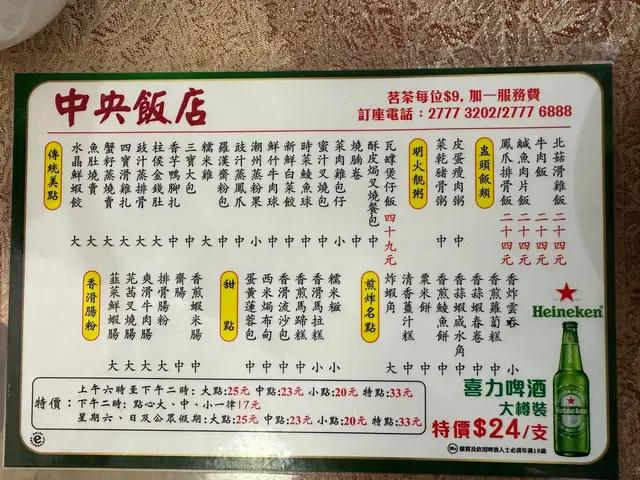 中央飯店
茗茶每位$9, 加一服務費
訂座電話：2777 3202/2777 6888
傳統美點
水晶鮮蝦餃 大
魚肚燒賣 大
蟹籽蒸燒賣 大
四寶滑雞扎 大
豉汁蒸排骨 大
柱侯金錢肚 大
香芋鴨腳扎 中
三寶大包 中
糯米雞 大
羅漢齋粉包 中
豉汁蒸鳳爪 中
潮州蒸粉果 小
鮮竹牛肉球 中
新鮮白菜餃 中
時菜鯪魚球 中
蜜汁叉燒包 中
菜肉雞包仔 小
燒腩卷 中
酥皮焗叉燒餐包 中
瓦罉煲仔飯 四十九元
明火靚粥
菜乾豬骨粥 中
皮蛋瘦肉粥 中
盅頭飯類
鳳爪排骨飯 二十四元
鹹魚肉片飯 二十四元
牛肉飯 二十四元
北菇滑雞飯 二十四元
香滑腸粉
韮菜鮮蝦腸 大
芫茜叉燒腸 大
爽滑牛肉腸 大
排骨腸粉 大
齋腸 中
香煎蝦米腸 中
甜點
蛋黃蓮蓉包 中
西米焗布甸 中
香滑流沙包 中
香煎馬蹄糕 中
香滑馬拉糕 小
糯米糍 小
煎炸名點
炸蝦角 大
清香薑汁糕 中
粟米餅 中
香煎鯪魚餅 中
香蒜蝦咸水角 中
香蒜蝦春卷 中
香煎蘿蔔糕 中
香炸雲吞 小
特價：
上午六時至下午二時: 大點:25元 中點:23元 小點:20元 特點:33元
下午二時: 點心大、中、小一律17元
星期六、日及公眾假期: 大點:25元 中點:23元 小點:20元 特點:33元
Heineken
Heineken
喜力啤酒
大樽裝
特價$24/支
18+ 購買及飲用啤酒人士必須年滿18歲